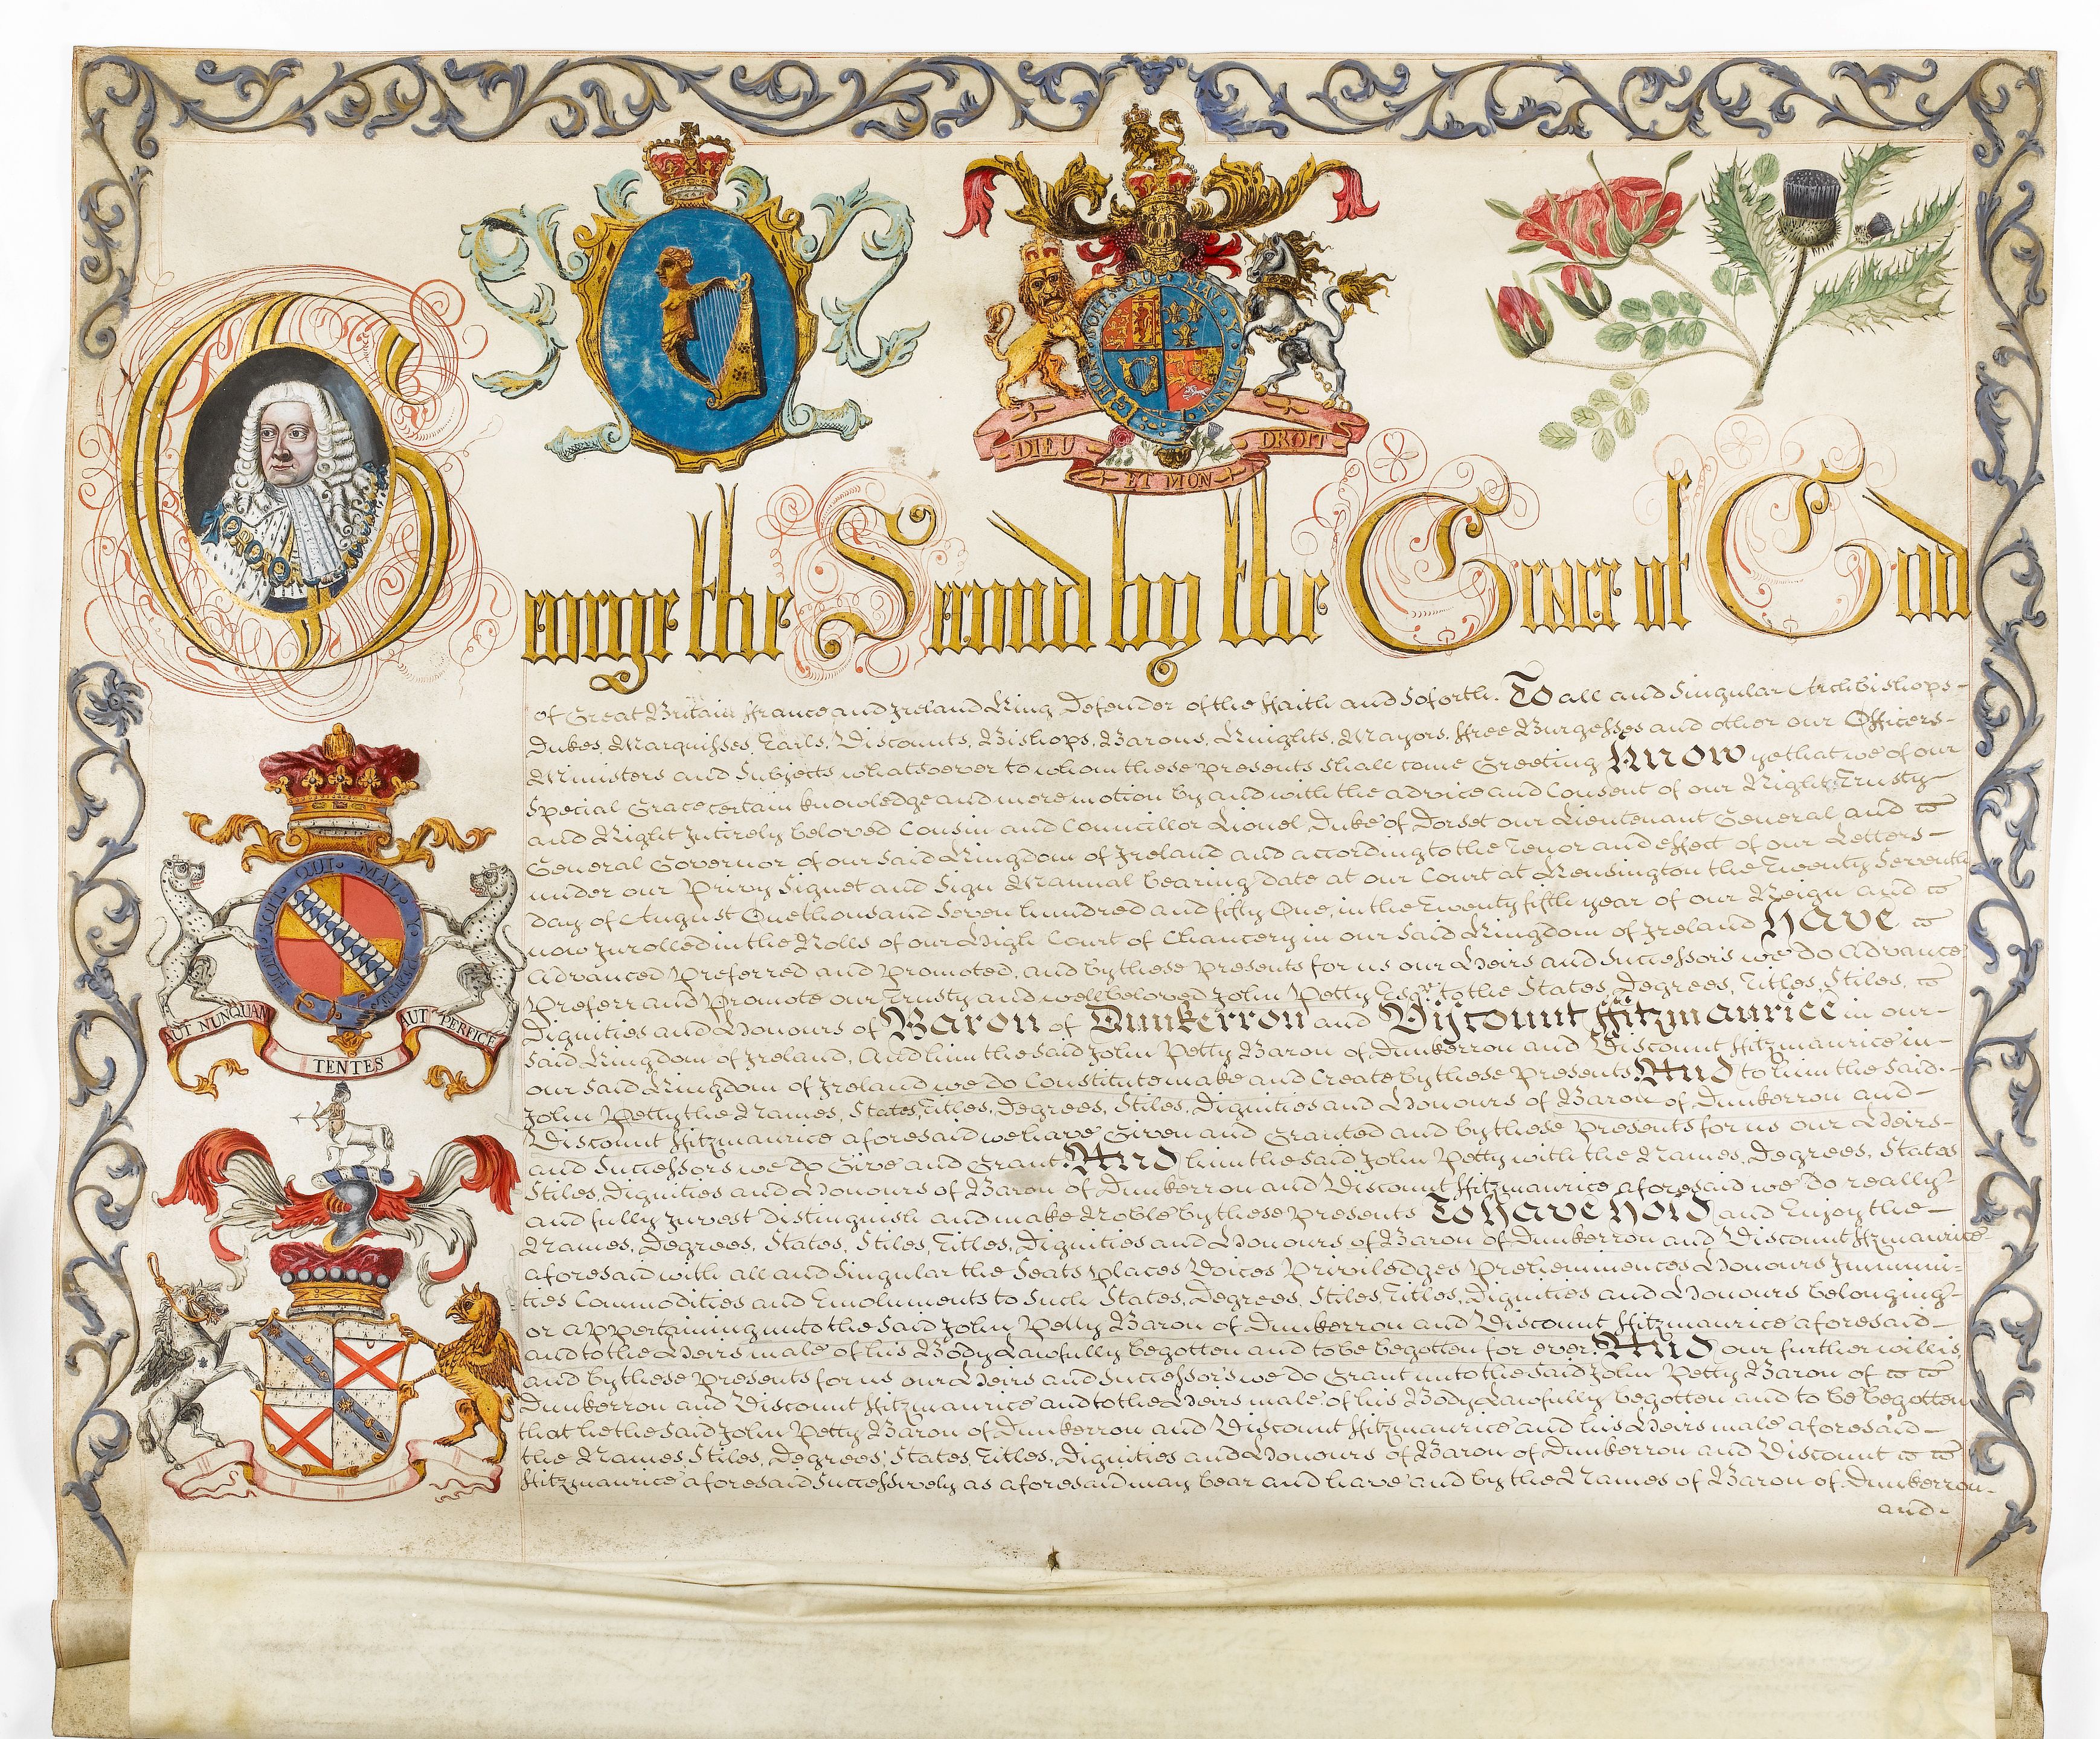 HONI SOIT QUI MAL Y PENSE
DIEU ET MON DROIT
George the Second by the Grace of God
of Great Britain ffrance and Ireland King Defender of the ffaith and Soforth. To all and Singular Archbishops
Dukes, Marquisses, Earls, Viscounts, Bishops, Barons, Knights, Mayors, ffree Burgesses and other our Officers
Ministers and Subjects whatsoever to whom these presents shall come Greeting Know ye that we of our
Special Grace certain knowledge and mere motion by and with the advice and Consent of our Right Trusty
and Right Intirely beloved Cousin and Councillor Lionel Duke of Dorset our Lieutenant General and
General Governor of our Said Kingdom of Ireland and according to the Tenor and effect of our Letters
under our Privy Signet and Sign Mannal bearing date at our Court at Kensington the Twenty Seventh
day of August One thousand Seven hundred and fifty One, in the Twenty fifth year of our Reign and
now Inrolled in the Rolls of our High Court of Chancery in our Said Kingdom of Ireland Have
Advanced Preferred and Promoted, and by these presents for us our Heirs and Successors we do Advance
Preferr and Promote our Trusty and wellbeloved John Petty Esqr. to the States, Degrees, Titles, Stiles,
Dignities and Honours of Baron of Dunkerron and Viscount ffitzmaurice in our
Said Kingdom of Ireland, And him the Said John Petty Baron of Dunkerron and Viscount ffitzmaurice in
our Said Kingdom of Ireland we do Constitute make and Create by these Presents And to him the Said
John Petty the Names, States, Titles, Degrees, Stiles, Dignities and Honours of Baron of Dunkerron and
Viscount ffitzmaurice aforesaid we have Given and Granted and by these presents for us our Heirs
and Successors we do Give and Grant. And him the Said John Petty with the Names, Degrees, States
Stiles, Dignities and Honours of Baron of Dunkerron and Viscount ffitzmaurice aforesaid we do really
and fully Invest Distinguish and make Noble by these Presents To have hold and Enjoy the
Names, Degrees, States, Stiles, Titles, Dignities and Honours of Baron of Dunkerron and Viscount ffitzmaurice
aforesaid with all and Singular the Seats places Voices Priviledges Preheminences Honours Immuni-
ties Commodities and Emoluments to Such States, Degrees, Stiles, Titles, Dignities and Honours belonging
or appertaining unto the Said John Petty Baron of Dunkerron and Viscount ffitzmaurice aforesaid
and to the Heirs male of his Body Lawfully begotten and to be begotten for ever. And our further will is,
and by these presents for us our Heirs and Successors we do Grant unto the Said John Petty Baron of
Dunkerron and Viscount ffitzmaurice and to the Heirs male of his Body Lawfully begotten and to be begotten
that he the Said John Petty Baron of Dunkerron and Viscount ffitzmaurice and his Heirs male aforesaid
the Names, Stiles, Degrees, States, Titles, Dignities and Honours of Baron of Dunkerron and Viscount
ffitzmaurice aforesaid Successively as aforesaid may bear and have and by the Names of Baron of Dunkerron
and
HONI SOIT QUI MAL Y PENSE
AUT NUNQUAM TENTES AUT PERFICE